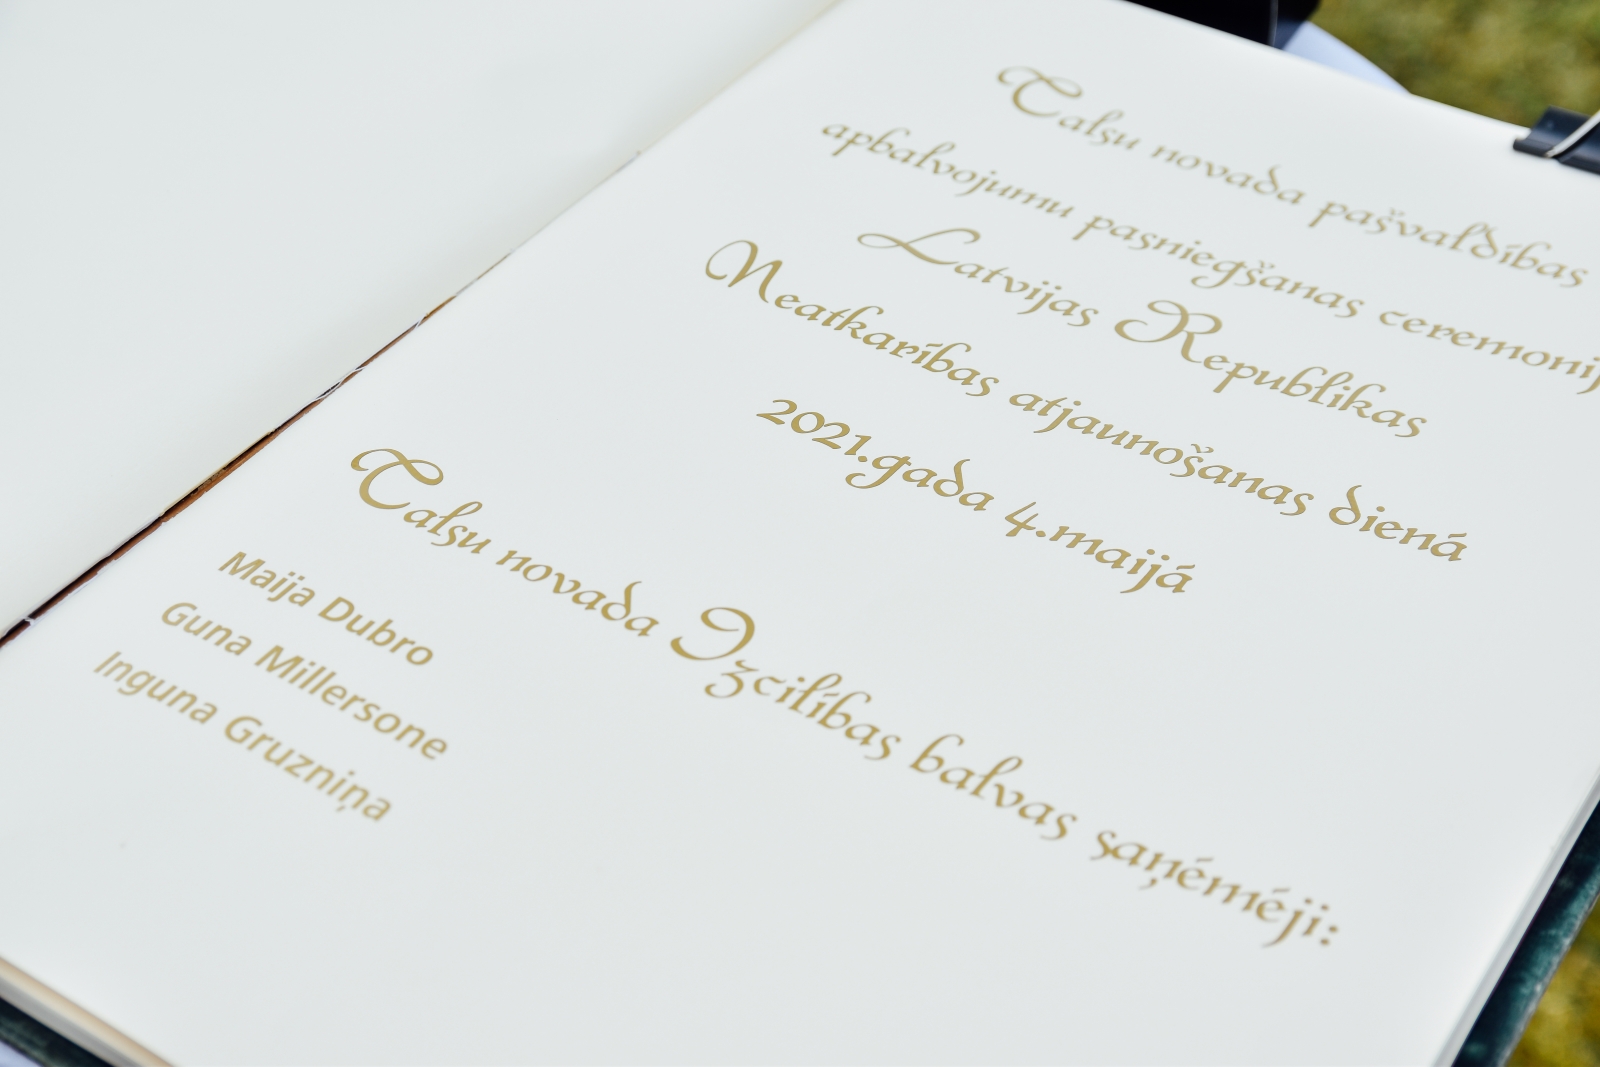 Talsu novada pašvaldības
apbalvojumu pasniegšanas ceremonij
Latvijas Republikas
Neatkarības atjaunošanas dienā
2021.gada 4.maijā
Talsu novada Izcilības balvas saņēmēji:
Maija Dubro
Guna Millersone
Inguna Gruzniņa